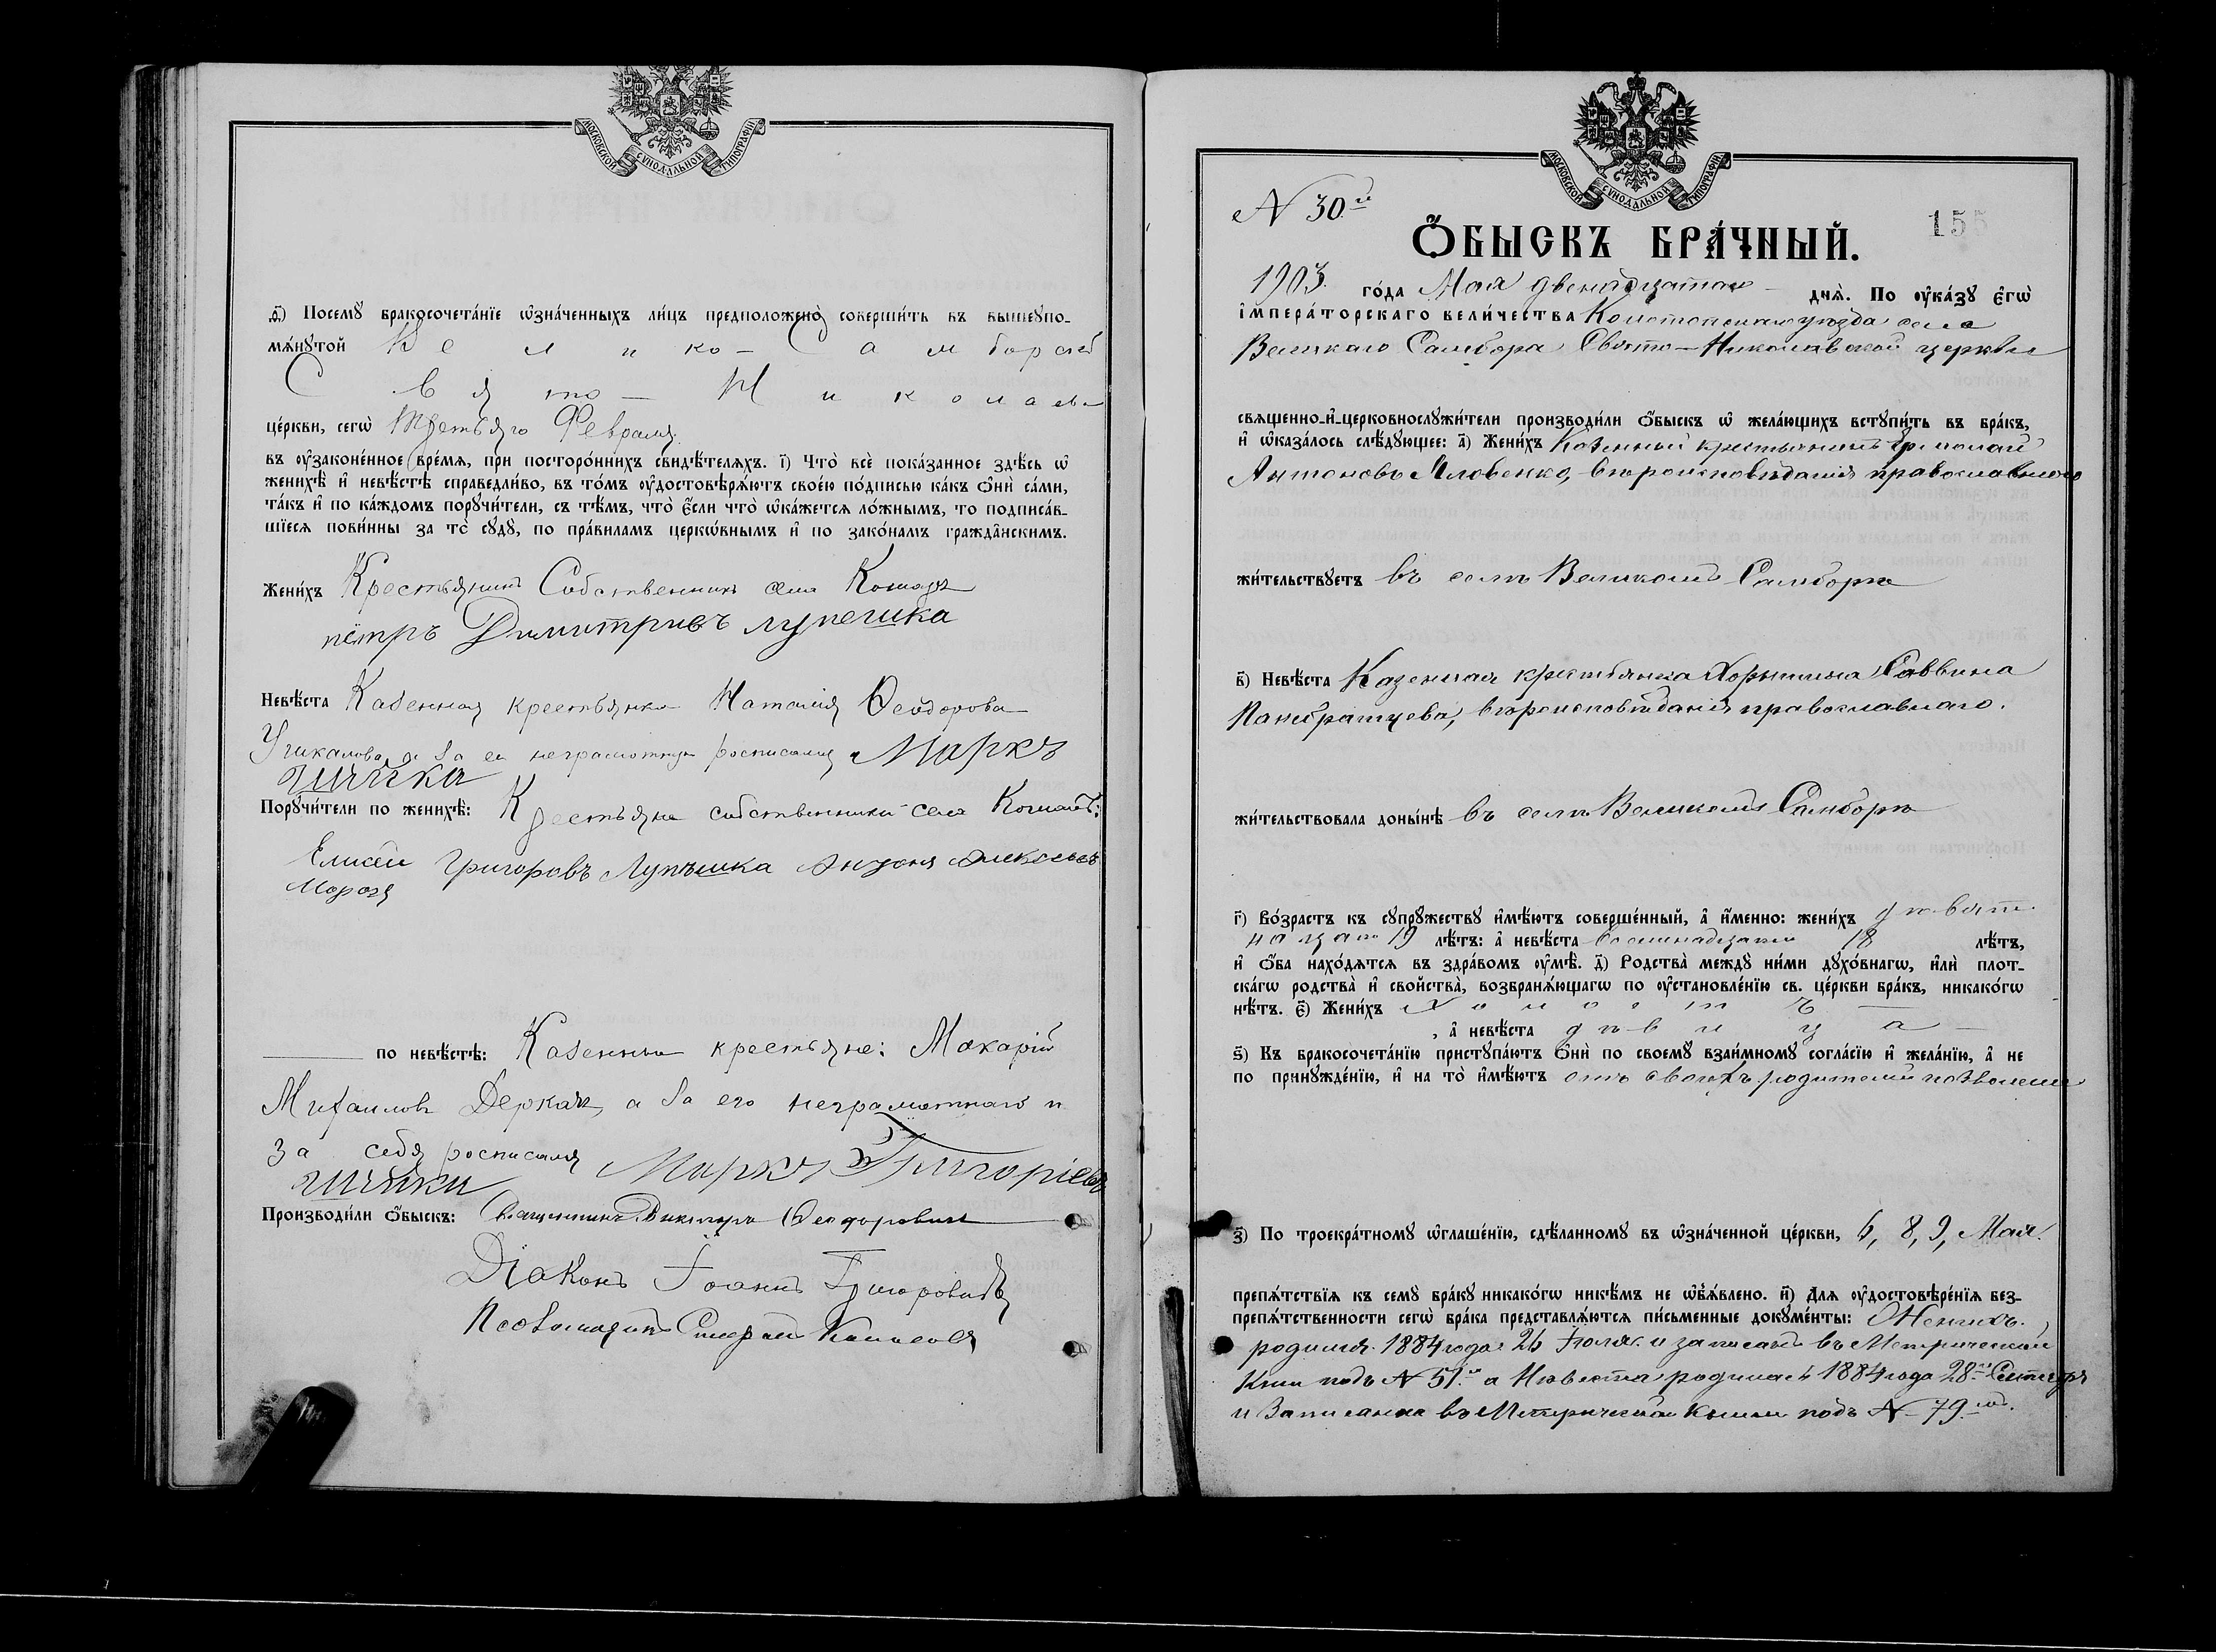 МОСКОВСКОЙ СѴНОДАЛЬНОЙ ТИПОГРАФІИ
ѳ҃) Посемꙋ̀ бракосочета́нїе ѡ҆зна́ченныхъ ли́цъ предположено̀ соверши́ть въ вышеꙋпо-
мѧ́нꙋтой Велико-Самборской
Свято-Николаев
це́ркви, сегѡ̀ Третьяго Февраля
въ ᲂу҆зако́ненное вре́мѧ, при посторо́ннихъ свидѣ́телѧхъ. і҃) Что̀ всѐ пока́занное здѣ́сь ѡ҆
женихѣ̀ и҆ невѣ́стѣ справедли́во, въ то́мъ ᲂу҆достовѣрѧ́ютъ свое́ю по́дписью ка́къ ѻ҆нѝ са́ми,
та́къ и҆ по ка́ждомъ порꙋчи́тели, съ тѣ́мъ, что̀ є҆́сли что̀ ѡ҆ка́жетсѧ ло́жнымъ, то подписа́в-
шїесѧ пови́нны за то̀ сꙋдꙋ̀, по пра́виламъ церкѡ́внымъ и҆ по зако́намъ гражда́нскимъ.
Жени́хъ Крестьянинъ Собственникъ села
пётръ Димитриевъ лупешка
Невѣ́ста Казенная крестьянка Наталія Ѳеодорова
а за ея неграмотную росписался Маркъ
Порꙋчи́тели по женихѣ̀: Крестьяне собственники села
Елисей Григоровъ Лупѣшка
Морозъ
по невѣ́стѣ: Казенные крестьяне: Макарій
Михаиловъ Деркачъ, а за его неграмотнаго и
за себя росписался Маркъ Григоріевъ
Производи́ли ѻ҆́быскъ: Священникъ Викторъ Ѳеодоровичъ
Діаконъ Іоаннъ Григоровичъ
Псаломщикъ
N 30.й
155
Ѻ҆́БЫСКЪ БРА́ЧНЫЙ.
1903 го́да Мая двенадцатаго днѧ̀. По ᲂу҆ка́зꙋ є҆гѡ̀
і҆мпера́торскаго вели́чества Конотопскаго уѣзда села
Великаго Самбора Свято-Николаевской церкви
свѧщенно-и҆-церковнослꙋжи́тели производи́ли ѻ҆́быскъ ѡ҆ жела́ющихъ встꙋпи́ть въ бра́къ,
и҆ ѡ҆каза́лось слѣ́дꙋющее: а҃) Жени́хъ Казенный крестьянинъ Ермолай
Антоновъ Яловенко, вѣроисповѣданія православнаго
жи́тельствꙋетъ въ селѣ Великомъ Самборѣ
в҃) Невѣ́ста Казенная крестьянка Хорытина Саввина
Панкратцева, вѣроисповѣданія православнаго.
жи́тельствовала доны́нѣ въ селѣ Великомъ Самборѣ
г҃) Во́зрастъ къ сꙋпрꙋ́жествꙋ и҆мѣ́ютъ соверше́нный, а҆ и҆́менно: жени́хъ девят
надцать 19 лѣ́тъ: а҆ невѣ́ста восемнадцать 18 лѣ́тъ,
и҆ ѻ҆́ба нахо́дѧтсѧ въ здра́вомъ ᲂу҆мѣ̀. д҃) Родства̀ междꙋ̀ ни́ми дꙋхо́внагѡ, и҆лѝ плот-
ска́гѡ родства̀ и҆ сво́йства, возбранѧ́ющагѡ по ᲂу҆становле́нїю св. це́ркви бра́къ, никако́гѡ
нѣ́тъ. є҃) Жени́хъ Холостъ
, а҆ невѣ́ста дѣвица
ѕ҃) Къ бракосочета́нїю пристꙋпа́ютъ ѻ҆нѝ по своемꙋ̀ взаи́мномꙋ согла́сїю и҆ жела́нїю, а҆ не
по принꙋжде́нїю, и҆ на то̀ и҆мѣ́ютъ отъ своихъ родителей позволеніе
з҃) По троекра́тномꙋ ѡ҆глаше́нїю, сдѣ́ланномꙋ въ ѡ҆зна́ченной це́ркви, 6, 8, 9, Мая.
препѧ́тствїѧ къ семꙋ̀ бра́кꙋ никако́гѡ никѣ́мъ не ѡ҆бъѧ́влено. и҃) Длѧ ᲂу҆достовѣре́нїѧ без-
препѧ́тственности сегѡ̀ бра́ка представлѧ́ютсѧ пи́сьменные докꙋме́нты: Женихъ
родился 1884 года 26 Іюля и записанъ въ Метрической
Книг подъ N 51.м а Невѣста родилась 1884 года 28го Сентябр
и Записанна въ Метрической книги подъ N 79.мъ.